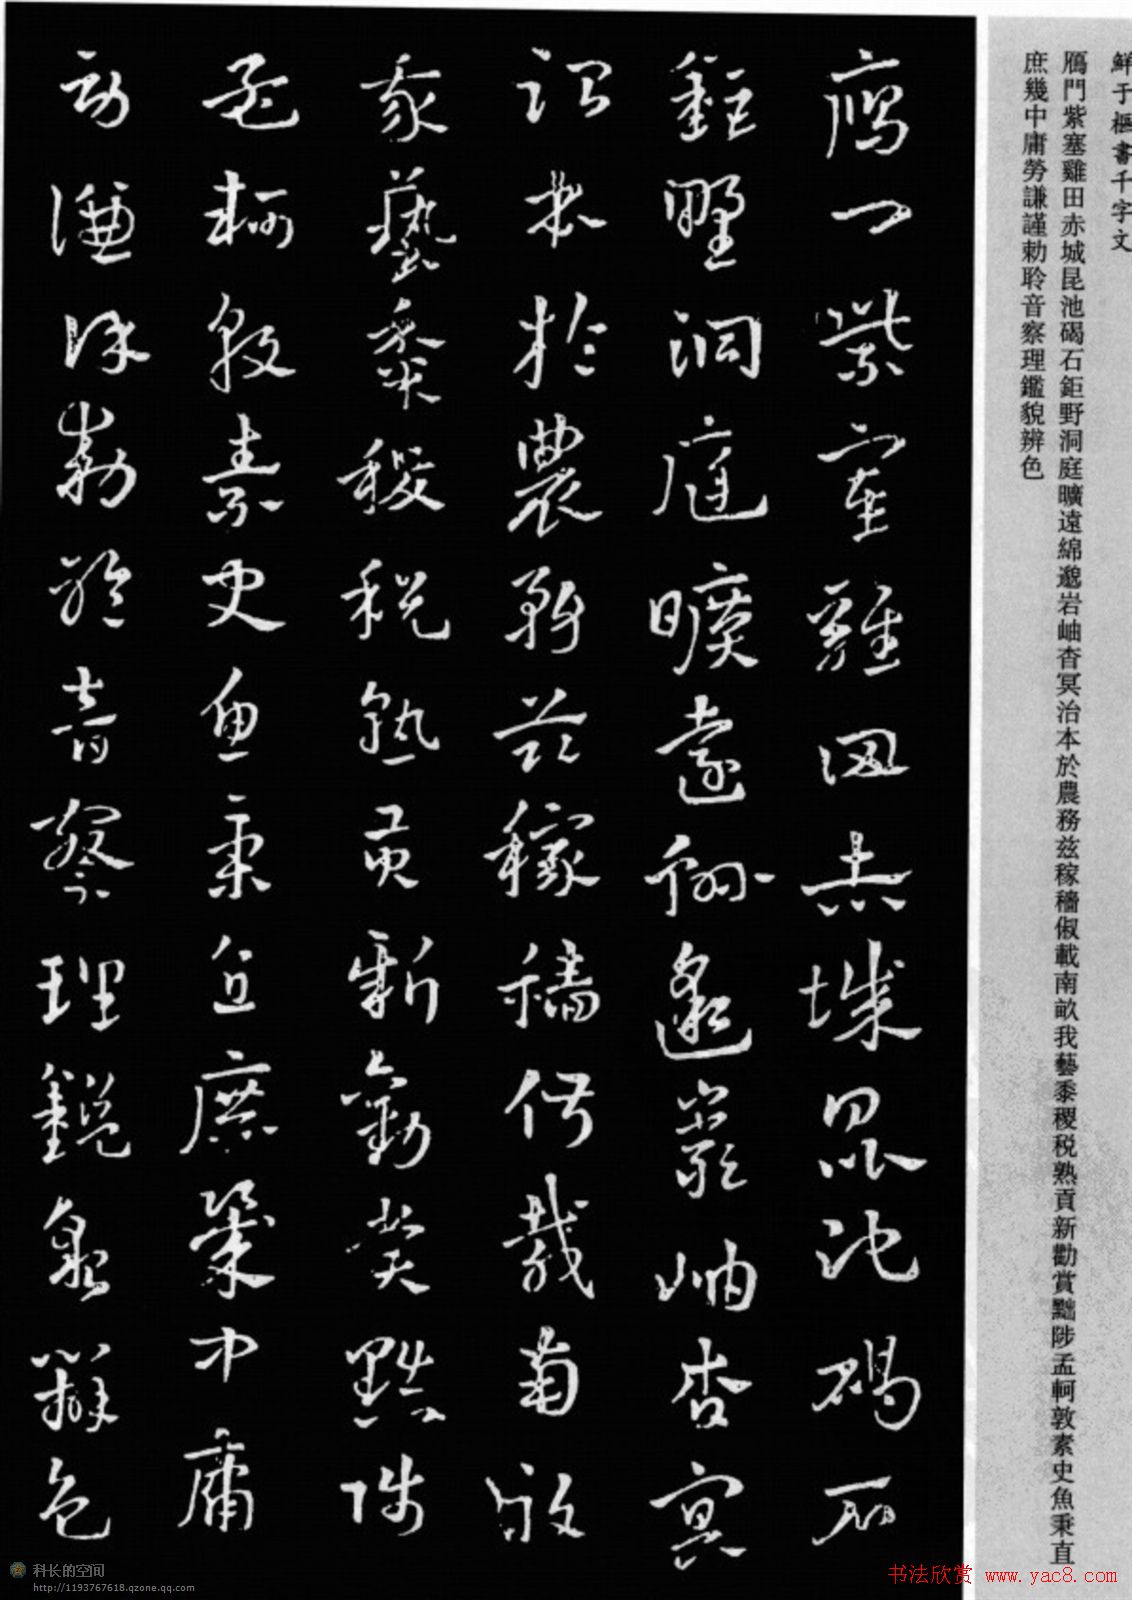 鮮于樞書千字文
鴈門紫塞雞田赤城昆池碣石鉅野洞庭曠遠綿邈岩岫杳冥治本於農務茲稼穡俶載南畝我藝黍稷税熟貢新勸賞黜陟孟軻敦素史魚秉直
庶幾中庸勞謙謹勅聆音察理鑑貌辨色
鴈門紫塞雞田赤城昆池碣石
鉅野洞庭曠遠綿邈巖岫杳冥
治本於農務茲稼穡俶載南畝
我藝黍稷税熟貢新勸賞黜陟
孟軻敦素史魚秉直庶幾中庸
勞謙謹勅聆音察理鑑貌辨色
科长的空间
http://1193767618.qzone.qq.com
书法欣赏 www.yac8.com